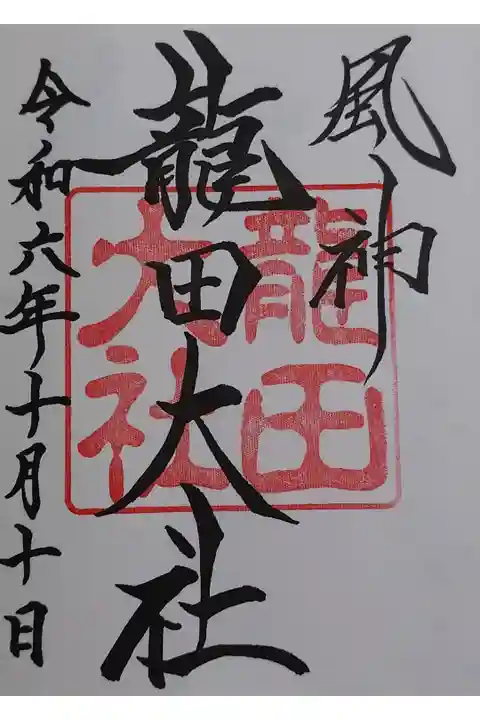 風神
龍田大社
龍田
大社
令和六年十月十日